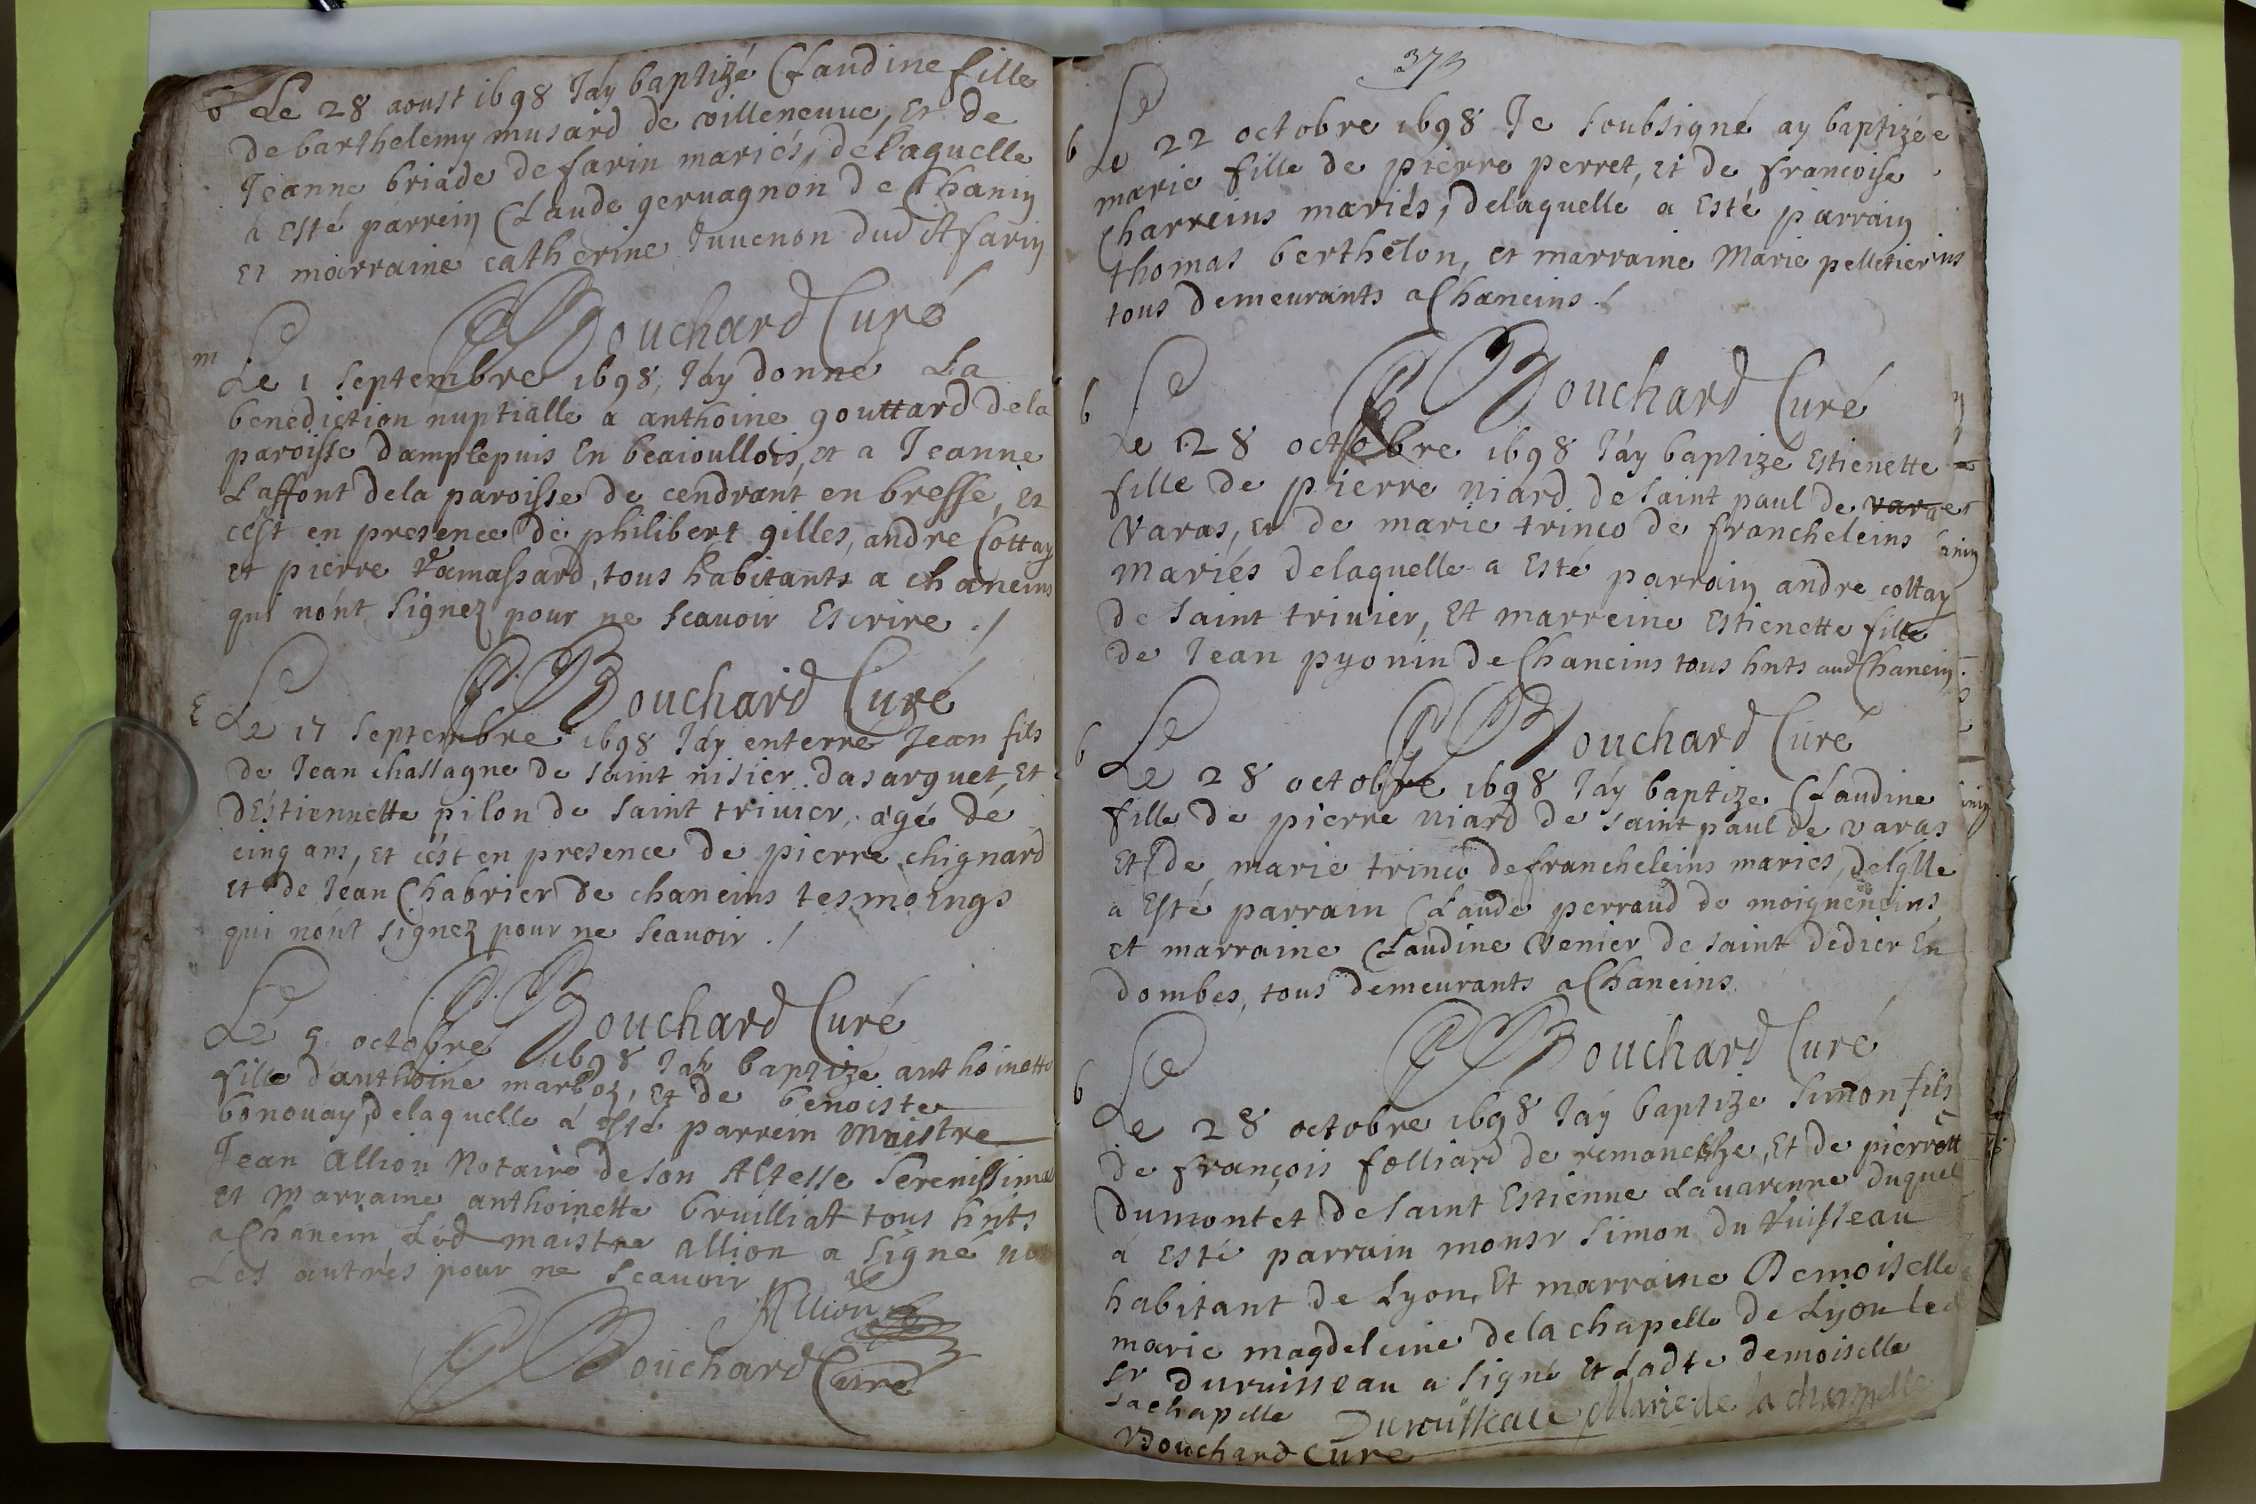 b Le 28 aoust 1698 Jáy baptizé Claudine fille
de barthelemy musard de villeneuve, Et de
Jeanne briade de farin mariés, delaquelle
a Esté parrein Claude gervagnon de Chanin
Et marraine catherine Juvenon dud
Bouchard Curé
m Le 1 septembre 1698, Jáy donné La
benediction nuptialle a anthoine gouttard dela
paroisse damplepuis En beaioullois, et a Jeanne
Laffont dela paroisse de cendrant en bresse, Et
cést en presence de philibert gilles, andre Cottay
et pierre Ramassard, tous habitants a chaneins
qui nónt signez pour ne scavoir Escrire ./
Bouchard Curé
E Le 17 septembre 1698 Jáy enterré Jean fils
de Jean chassagne de saint nisier dasarguet, Et
dÉstiennette pilon de saint trivier, agé de
cinq ans, Et cést en presence de pierre chignard
et de Jean Chabrier de chaneins tesmoings
qui nónt signez pour ne scavoir ./
Bouchard Curé
Le 5 octobre 1698 Jáy baptize anthoinette
fille danthoine marboz, Et de benoiste
bonouay, delaquelle á esté parrein Maistre
Jean Allion Notaire de son Altesse Serenissime
et Marraine anthoinette bruilliat tous hnts
a Chanein Led maistre allion a signé non
Les autres pour ne scavoir
Allion
Bouchard Curé
373
b Le 22 octobre 1698 Je soubsigné ay baptizée
marie fille de pierre perret, et de francoise
Charreins mariés, delaquelle a Esté parrain
thomas berthelon, et marraine Marie pelletier
tous demeurants a Chaneins ./
Bouchard Curé
b Le 28 octobre 1698 Jáy baptizé Estienette
fille de pierre niard de saint paul de varaes
varas, et de marie trinco de francheleins
Mariés delaquelle a Esté parrain andre cottay
de saint trivier, Et marreine Estienette fille
de Jean pyonin de Chaneins tous hnts aud Chanein.
Bouchard Curé
b Le 28 octobre 1698 Jáy baptize Claudine
fille de pierre niard de saint paul de varas
Et de marie trinco de francheleins mariés, delqlle
a Esté parrain Claude perraud de moigneneins
et marraine Claudine venier de saint dedier En
dombes, tous demeurants a Chaneins
Bouchard Curé
b Le 28 octobre 1698 Jáy baptize Simon fils
de françois folliard de , Et de pierrett
Dumontet de saint Estienne Lavarenne duquel
á Esté parrain monsr Simon du Ruisseau
habitant de Lyon, Et marraine Demoiselle
marie magdeleine de la chapelle de Lyon led
sr duruisseau a signé et Ladte demoiselle
Lachapelle Duruisseau Marie de la chapelle
Bouchard Cure